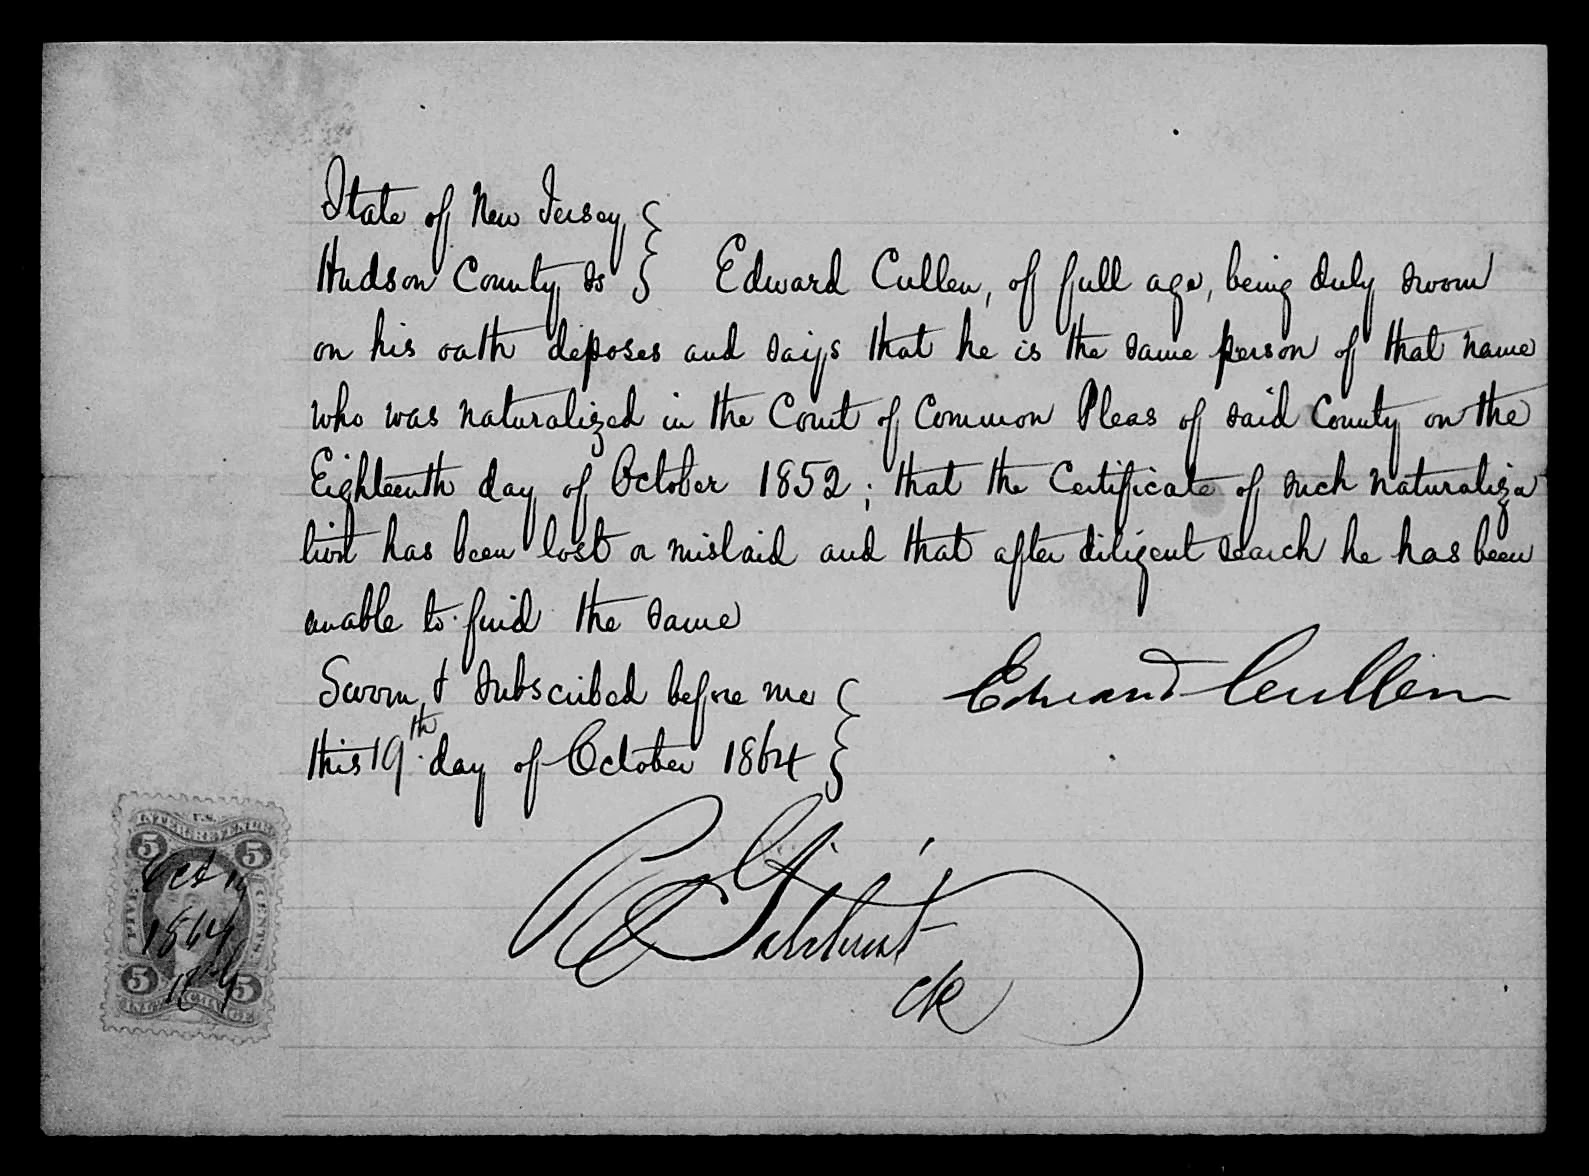 State of New Jersey }
Hudson County ss } Edward Cullen, of full age, being duly sworn
on his oath deposes and says that he is the same person of that name
who was naturalized in the Court of Common Pleas of said County on the
Eighteenth day of October 1852; that the Certificate of such naturaliza
tion has been lost or mislaid and that after diligent search he has been
unable to find the same
Sworn & subscribed before me }
Edward Cullen
this 19th day of October 1864 }
ck
U.S.
INTER. REVENUE
5 5
FIVE CENTS
Oct 19
1864
5 5